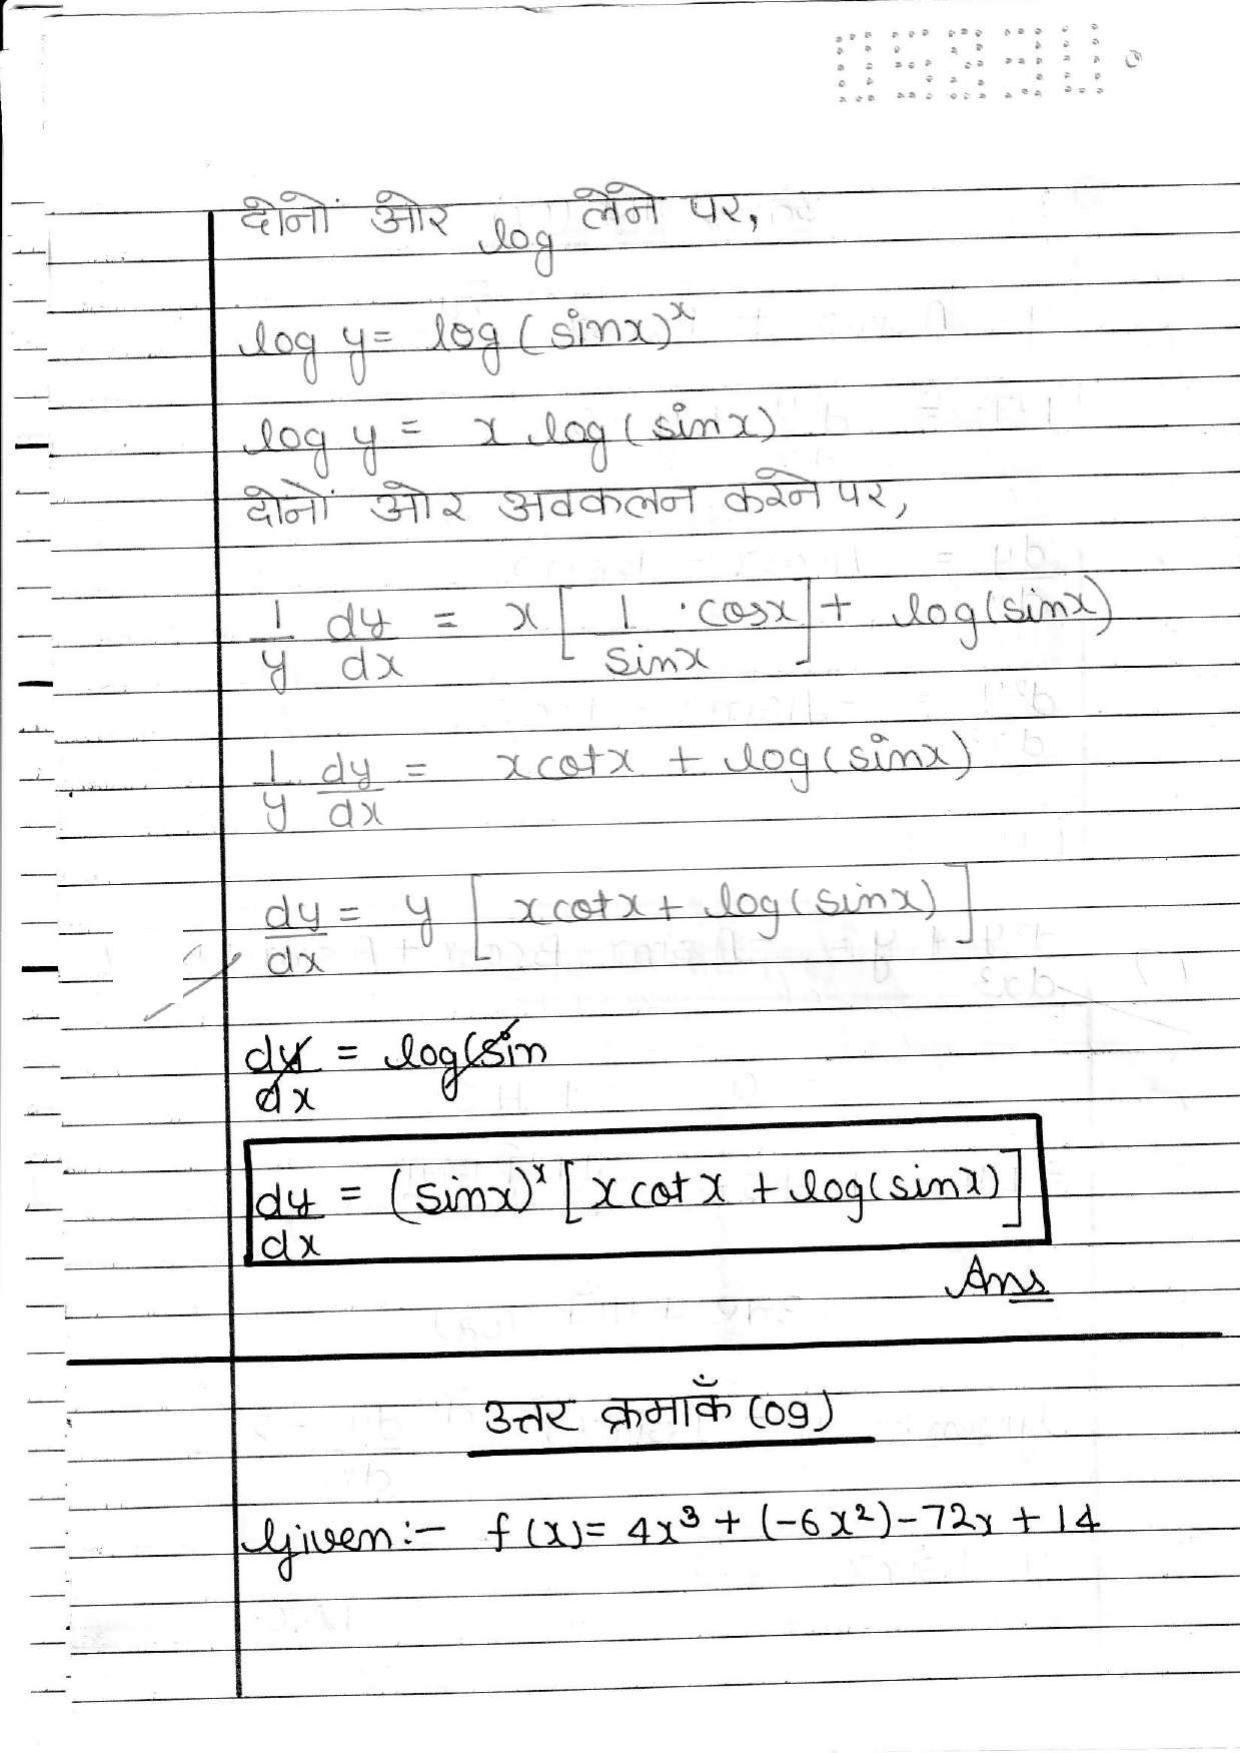 दोनों ओर log लेने पर,
log y = log (sinx)^x
log y = x log (sinx)
दोनों ओर अवकलन करने पर,
1/y dy/dx = x [ 1/sinx · cosx ] + log(sinx)
1/y dy/dx = x cotx + log(sinx)
dy/dx = y [ x cotx + log(sinx) ]
dy/dx = log(sin
dy/dx = (sinx)^x [ x cot x + log(sinx) ]
Ans
उत्तर क्रमाकँ (09)
Given:- f(x) = 4x³ + (-6x²) - 72x + 14